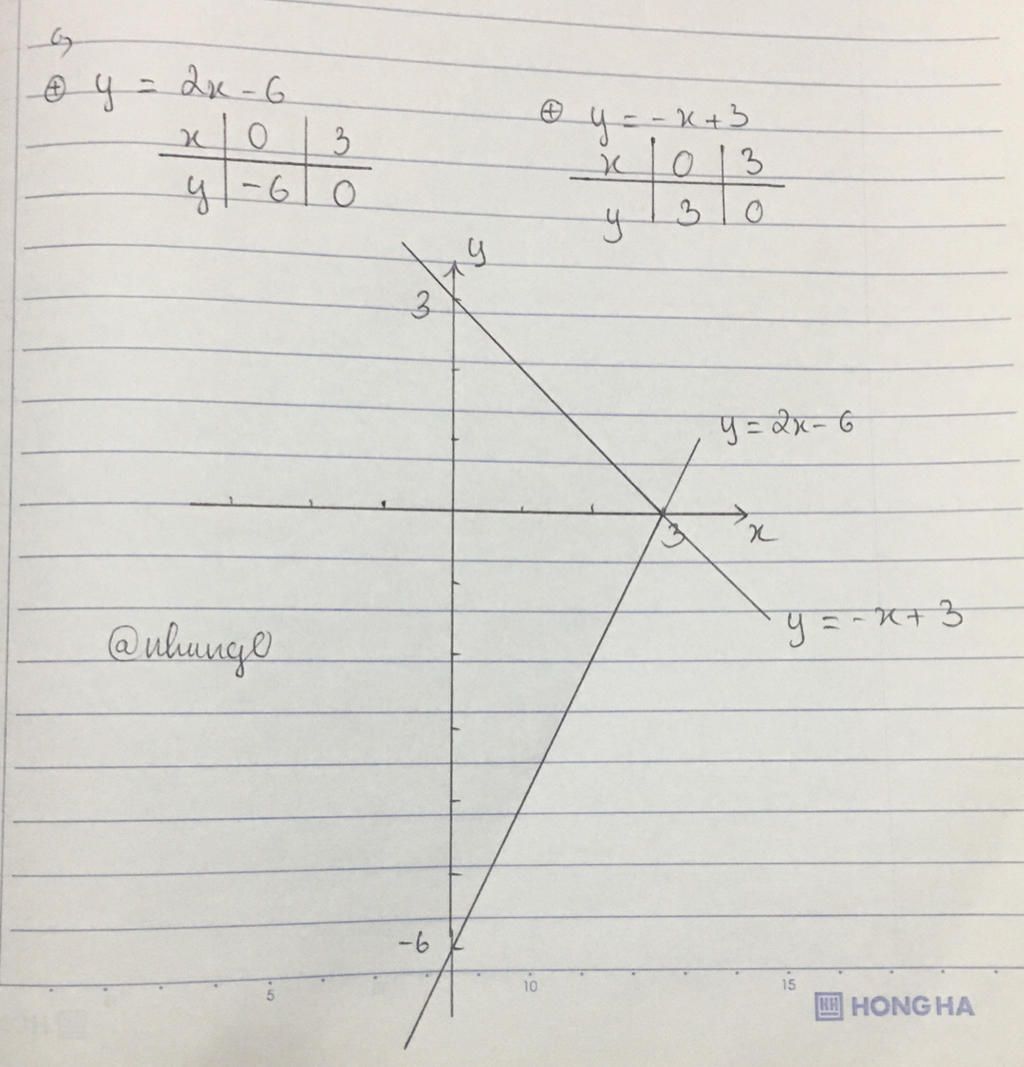 c,
⊕ y = 2x - 6
x | 0 | 3
y | -6 | 0
⊕ y = -x + 3
x | 0 | 3
y | 3 | 0
y
3
y = 2x - 6
3
x
y = -x + 3
-6
5
10
15
HH HONG HA